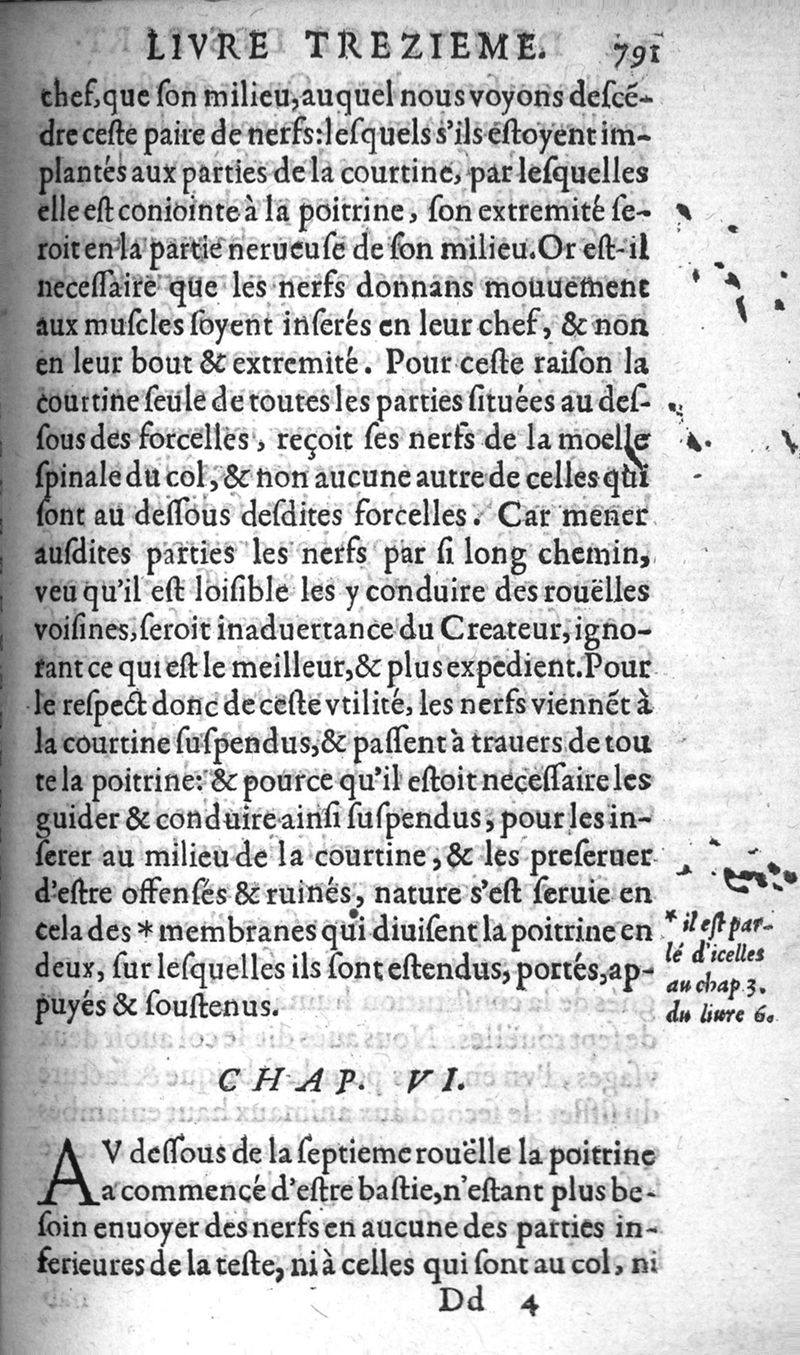 LIVRE TREZIEME. 791
chef, que ſon milieu, auquel nous voyons deſcẽ-
dre ceſte paire de nerfs: leſquels s'ils eſtoyent im-
plantés aux parties de la courtine, par leſquelles
elle eſt coniointe à la poitrine, ſon extremité ſe-
roit en la partie nerueuſe de ſon milieu. Or eſt-il
neceſſaire que les nerfs donnans mouuement
aux muſcles ſoyent inſerés en leur chef, & non
en leur bout & extremité. Pour ceſte raiſon la
courtine ſeule de toutes les parties ſituées au deſ-
ſous des forcelles, reçoit ſes nerfs de la moelle
ſpinale du col, & non aucune autre de celles qui
ſont au deſſous deſdites forcelles. Car mener
auſdites parties les nerfs par ſi long chemin,
veu qu'il eſt loiſible les y conduire des rouëlles
voiſines, ſeroit inaduertance du Createur, igno-
rant ce qui eſt le meilleur, & plus expedient. Pour
le reſpect donc de ceſte vtilité, les nerfs viennẽt à
la courtine ſuſpendus, & paſſent à trauers de tou
te la poitrine: & pource qu'il eſtoit neceſſaire les
guider & conduire ainſi ſuſpendus, pour les in-
ſerer au milieu de la courtine, & les preſeruer
d'eſtre offenſés & ruinés, nature s'eſt ſeruie en
cela des * membranes qui diuiſent la poitrine en
deux, ſur leſquelles ils ſont eſtendus, portés, ap-
puyés & ſouſtenus.
* il eſt par-
lé d'icelles
au chap 3.
du liure 6.
CHAP. VI.
AV deſſous de la ſeptieme rouëlle la poitrine
a commencé d'eſtre baſtie, n'eſtant plus be-
ſoin enuoyer des nerfs en aucune des parties in-
ferieures de la teſte, ni à celles qui ſont au col, ni
Dd 4